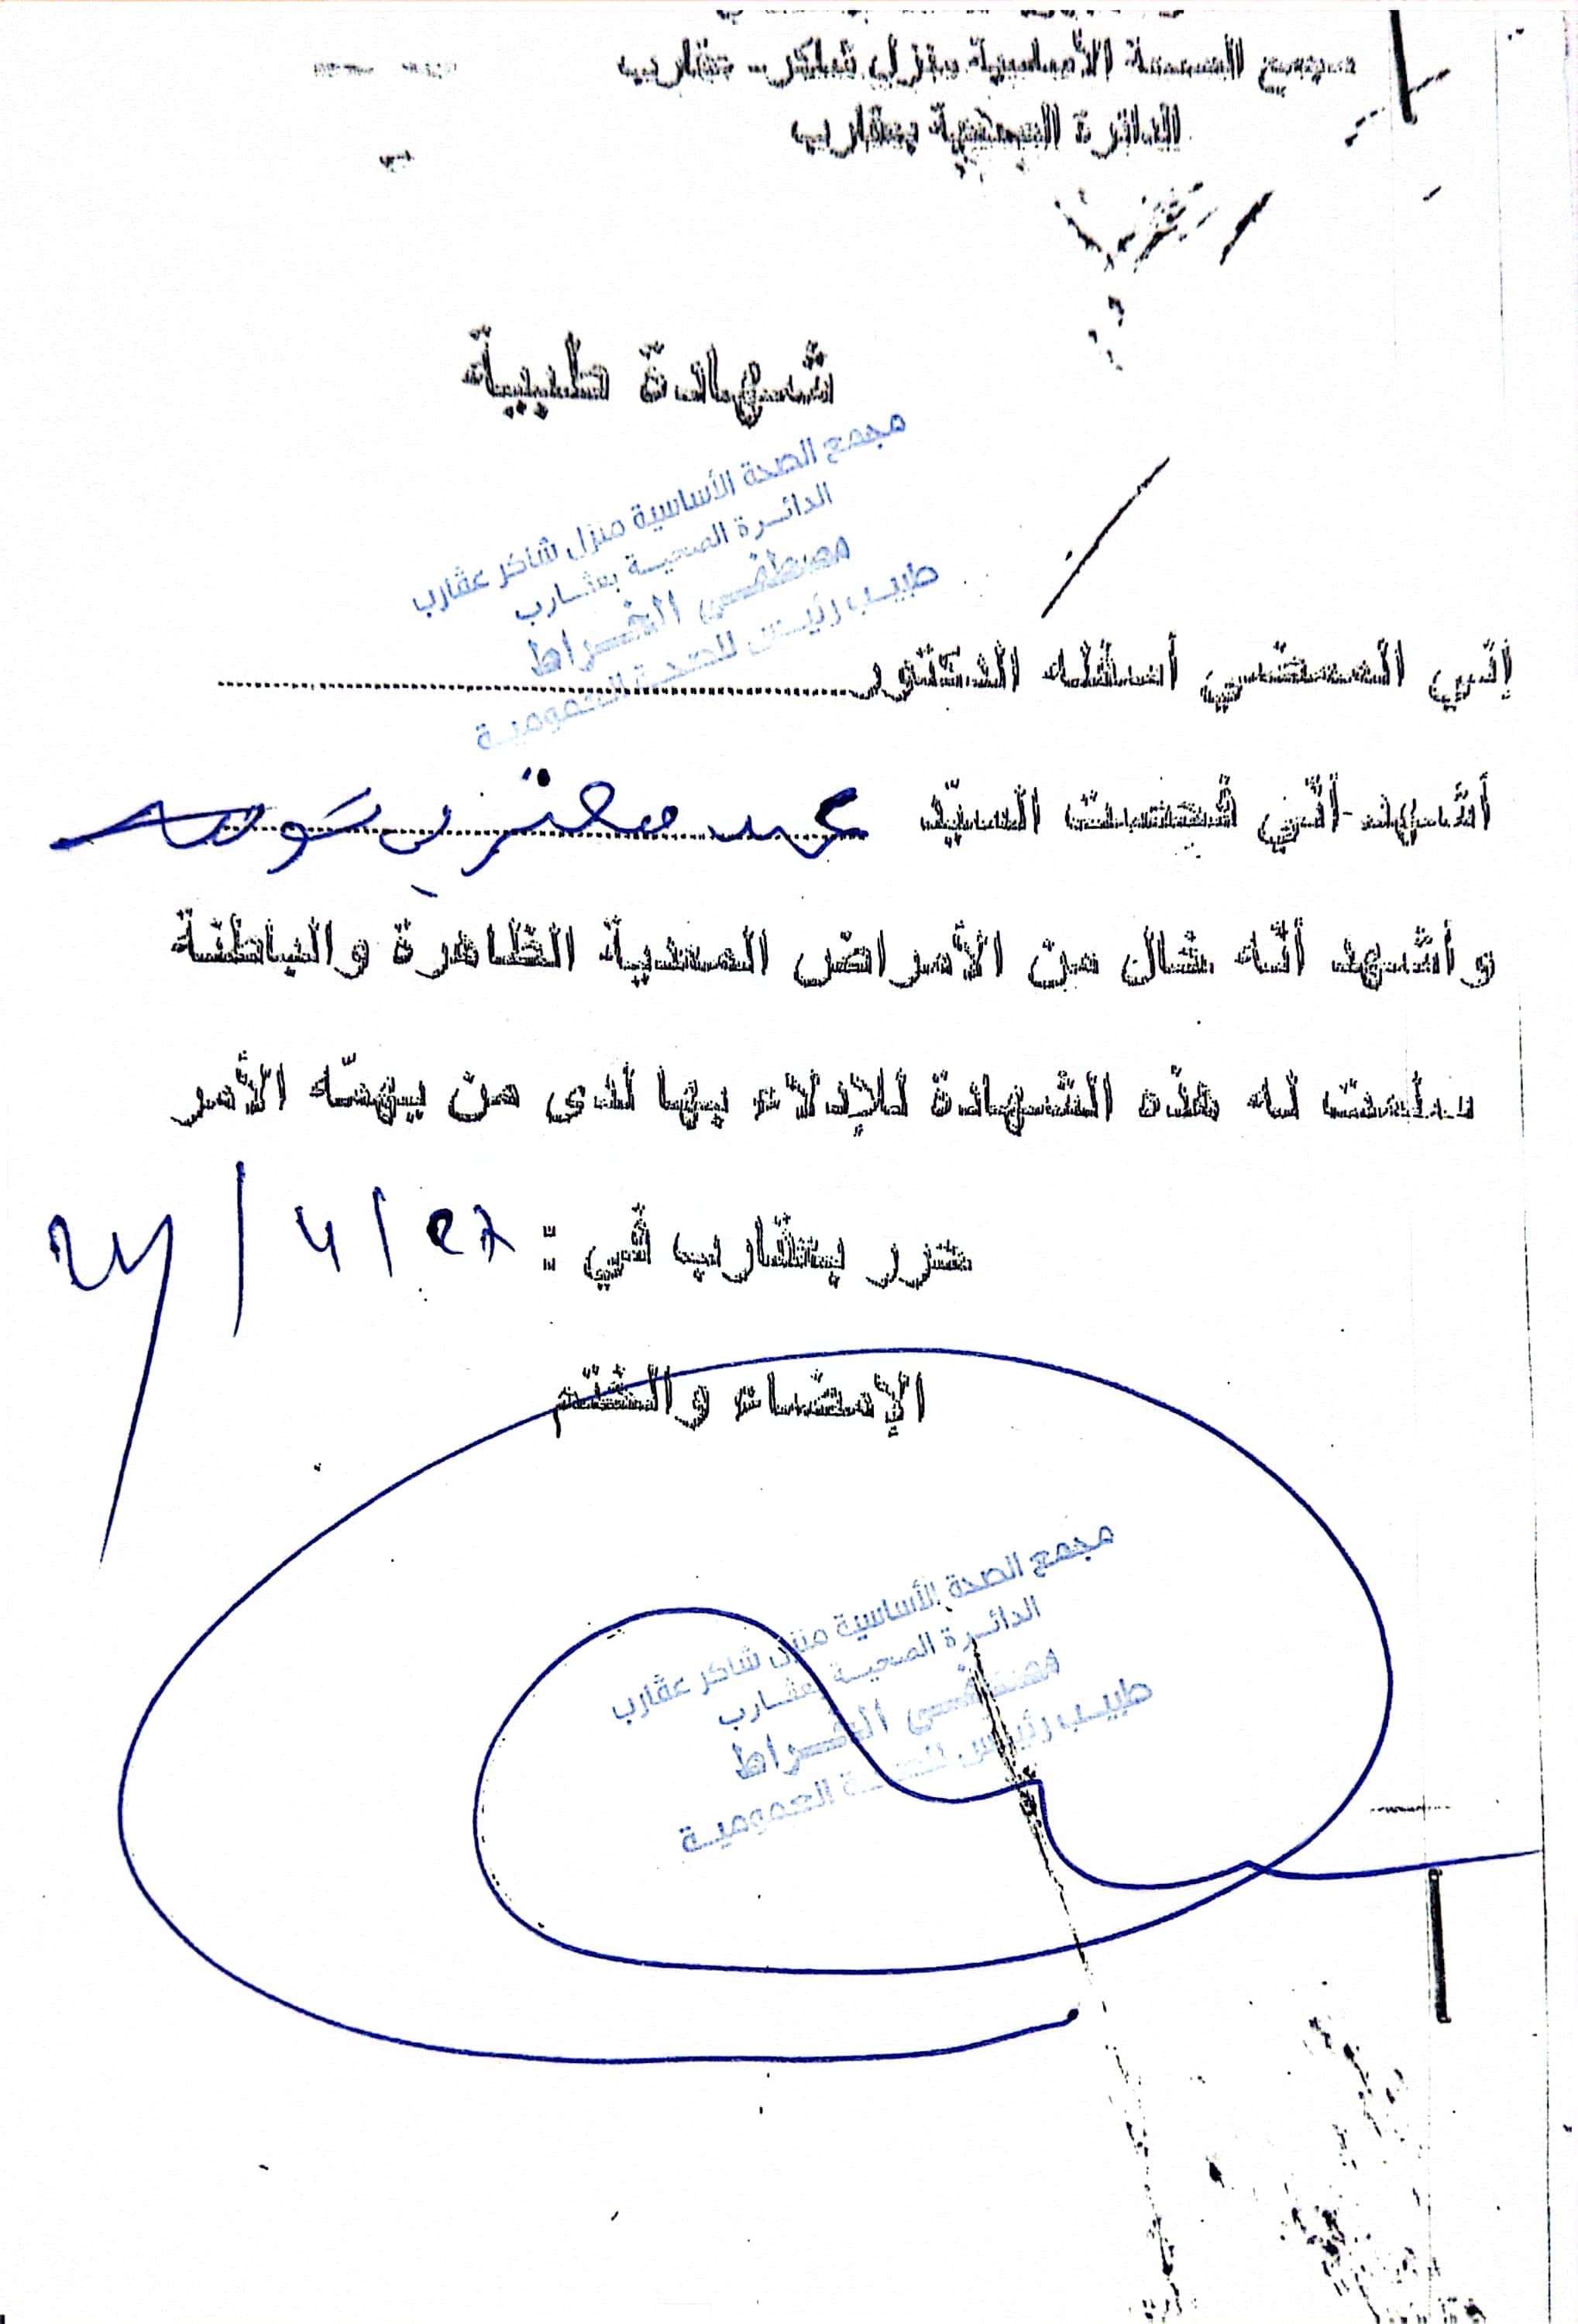 مجمع الصحة الأساسية بمنزل شاكر - عقارب
الدائرة الصحية بعقارب
شهادة طبية
مجمع الصحة الأساسية منزل شاكر عقارب
الدائرة الصحية بعقارب
مصطفى الخراط
طبيب رئيس للصحة العمومية
إنّي الممضي أسفله الدكتور
أشهد أنّني فحصت السيّد
وأشهد أنّه خال من الأمراض المعدية الظاهرة والباطنة
سلمت له هذه الشهادة للإدلاء بها لدى من يهمّه الأمر
حرر بعقارب في : 27 / 4 / 24
الإمضاء والختم
مجمع الصحة الأساسية منزل شاكر عقارب
الدائرة الصحية بعقارب
مصطفى الخراط
طبيب رئيس للصحة العمومية